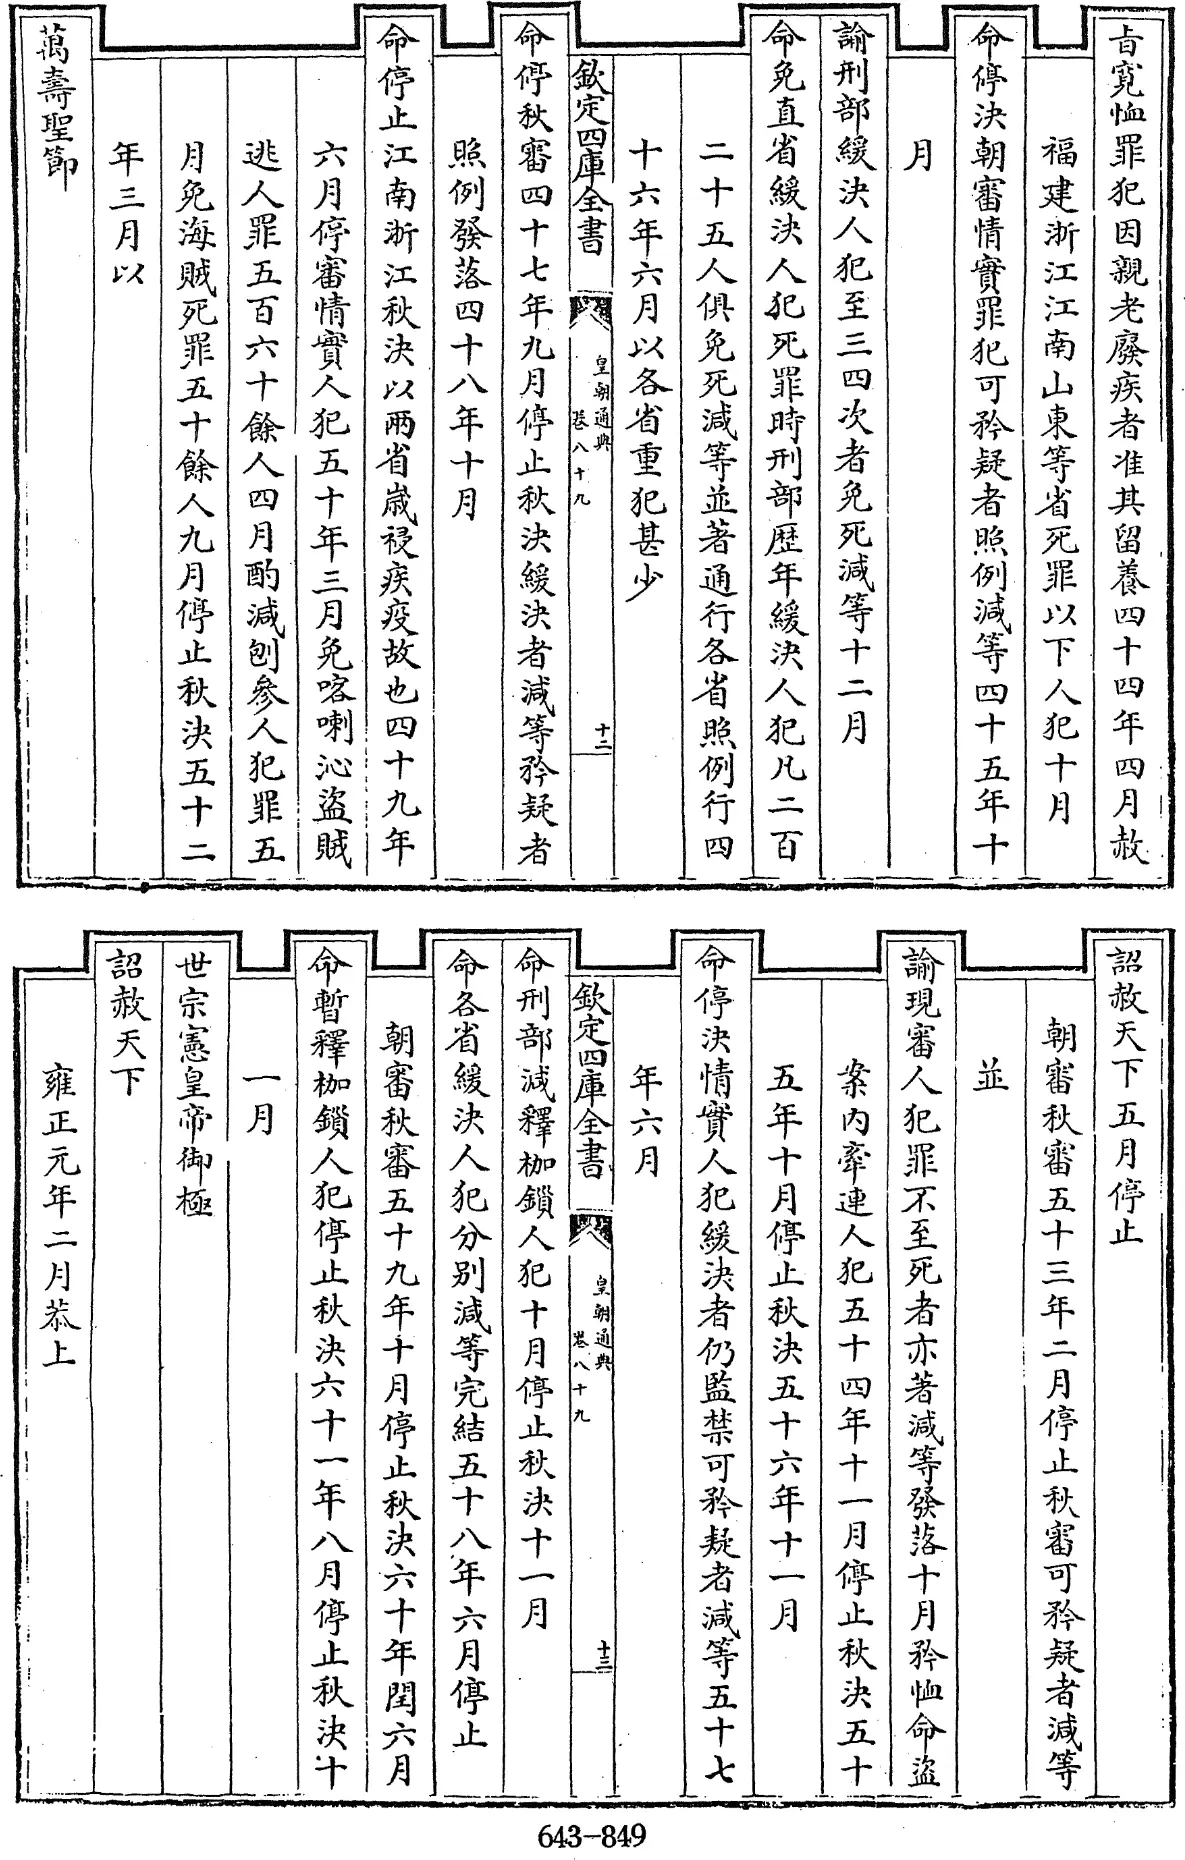 旨寛恤罪犯因親老廢疾者准其留養四十四年四月赦
福建浙江江南山東等省死罪以下人犯十月
命停決朝審情實罪犯可矜疑者照例減等四十五年十
月
諭刑部緩決人犯至三四次者免死減等十二月
命免直省緩決人犯死罪時刑部歴年緩決人犯凡二百
二十五人俱免死減等並著通行各省照例行四
十六年六月以各省重犯甚少
欽定四庫全書
皇朝通典
卷八十九
十二
命停秋審四十七年九月停止秋決緩決者減等矜疑者
照例發落四十八年十月
命停止江南浙江秋決以兩省嵗祲疾疫故也四十九年
六月停審情實人犯五十年三月免喀喇沁盜賊
逃人罪五百六十餘人四月酌減刨參人犯罪五
月免海賊死罪五十餘人九月停止秋決五十二
年三月以
萬壽聖節
詔赦天下五月停止
朝審秋審五十三年二月停止秋審可矜疑者減等
並
諭現審人犯罪不至死者亦著減等發落十月矜恤命盜
案內牽連人犯五十四年十一月停止秋決五十
五年十月停止秋決五十六年十一月
命停決情實人犯緩決者仍監禁可矜疑者減等五十七
年六月
欽定四庫全書
皇朝通典
卷八十九
十三
命刑部減釋枷鎖人犯十月停止秋決十一月
命各省緩決人犯分别減等完結五十八年六月停止
朝審秋審五十九年十月停止秋決六十年閏六月
命暫釋枷鎖人犯停止秋決六十一年八月停止秋決十
一月
世宗憲皇帝御極
詔赦天下
雍正元年二月恭上
643-849